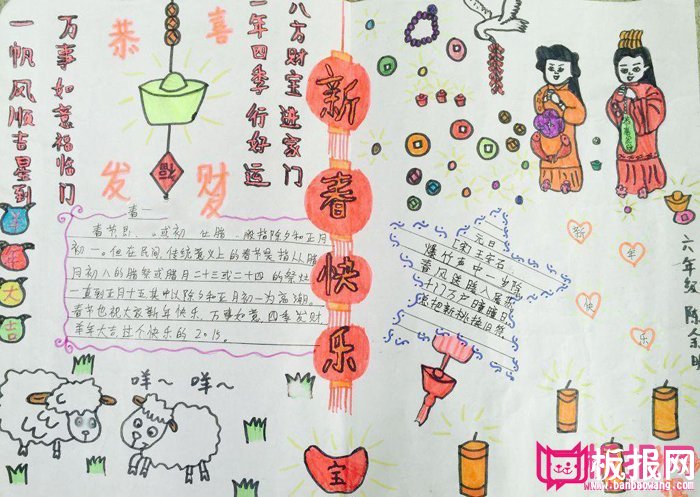 一帆风顺吉星到
万事如意福临门
恭喜
发财
福
一年四季行好运
八方财宝进家门
新春快乐
羊年大吉
春
春节 或初 腊 般指除夕和正月
初一。但在民间,传统意义上的春节是指从腊
月初八的腊祭或腊月二十三或二十四的祭灶
一直到正月十五,其中以除夕和正月初一为高潮。
春节也祝大家新年快乐,万事如意,四季发财
羊年大吉过个快乐的2015。
元日
[宋]王安石
爆竹声中一岁除
春风送暖入屠苏
千门万户曈曈日
总把新桃换旧符
新年快乐
六年级 陈
咩~ 咩~
宝
板报网
www.banbaowang.com